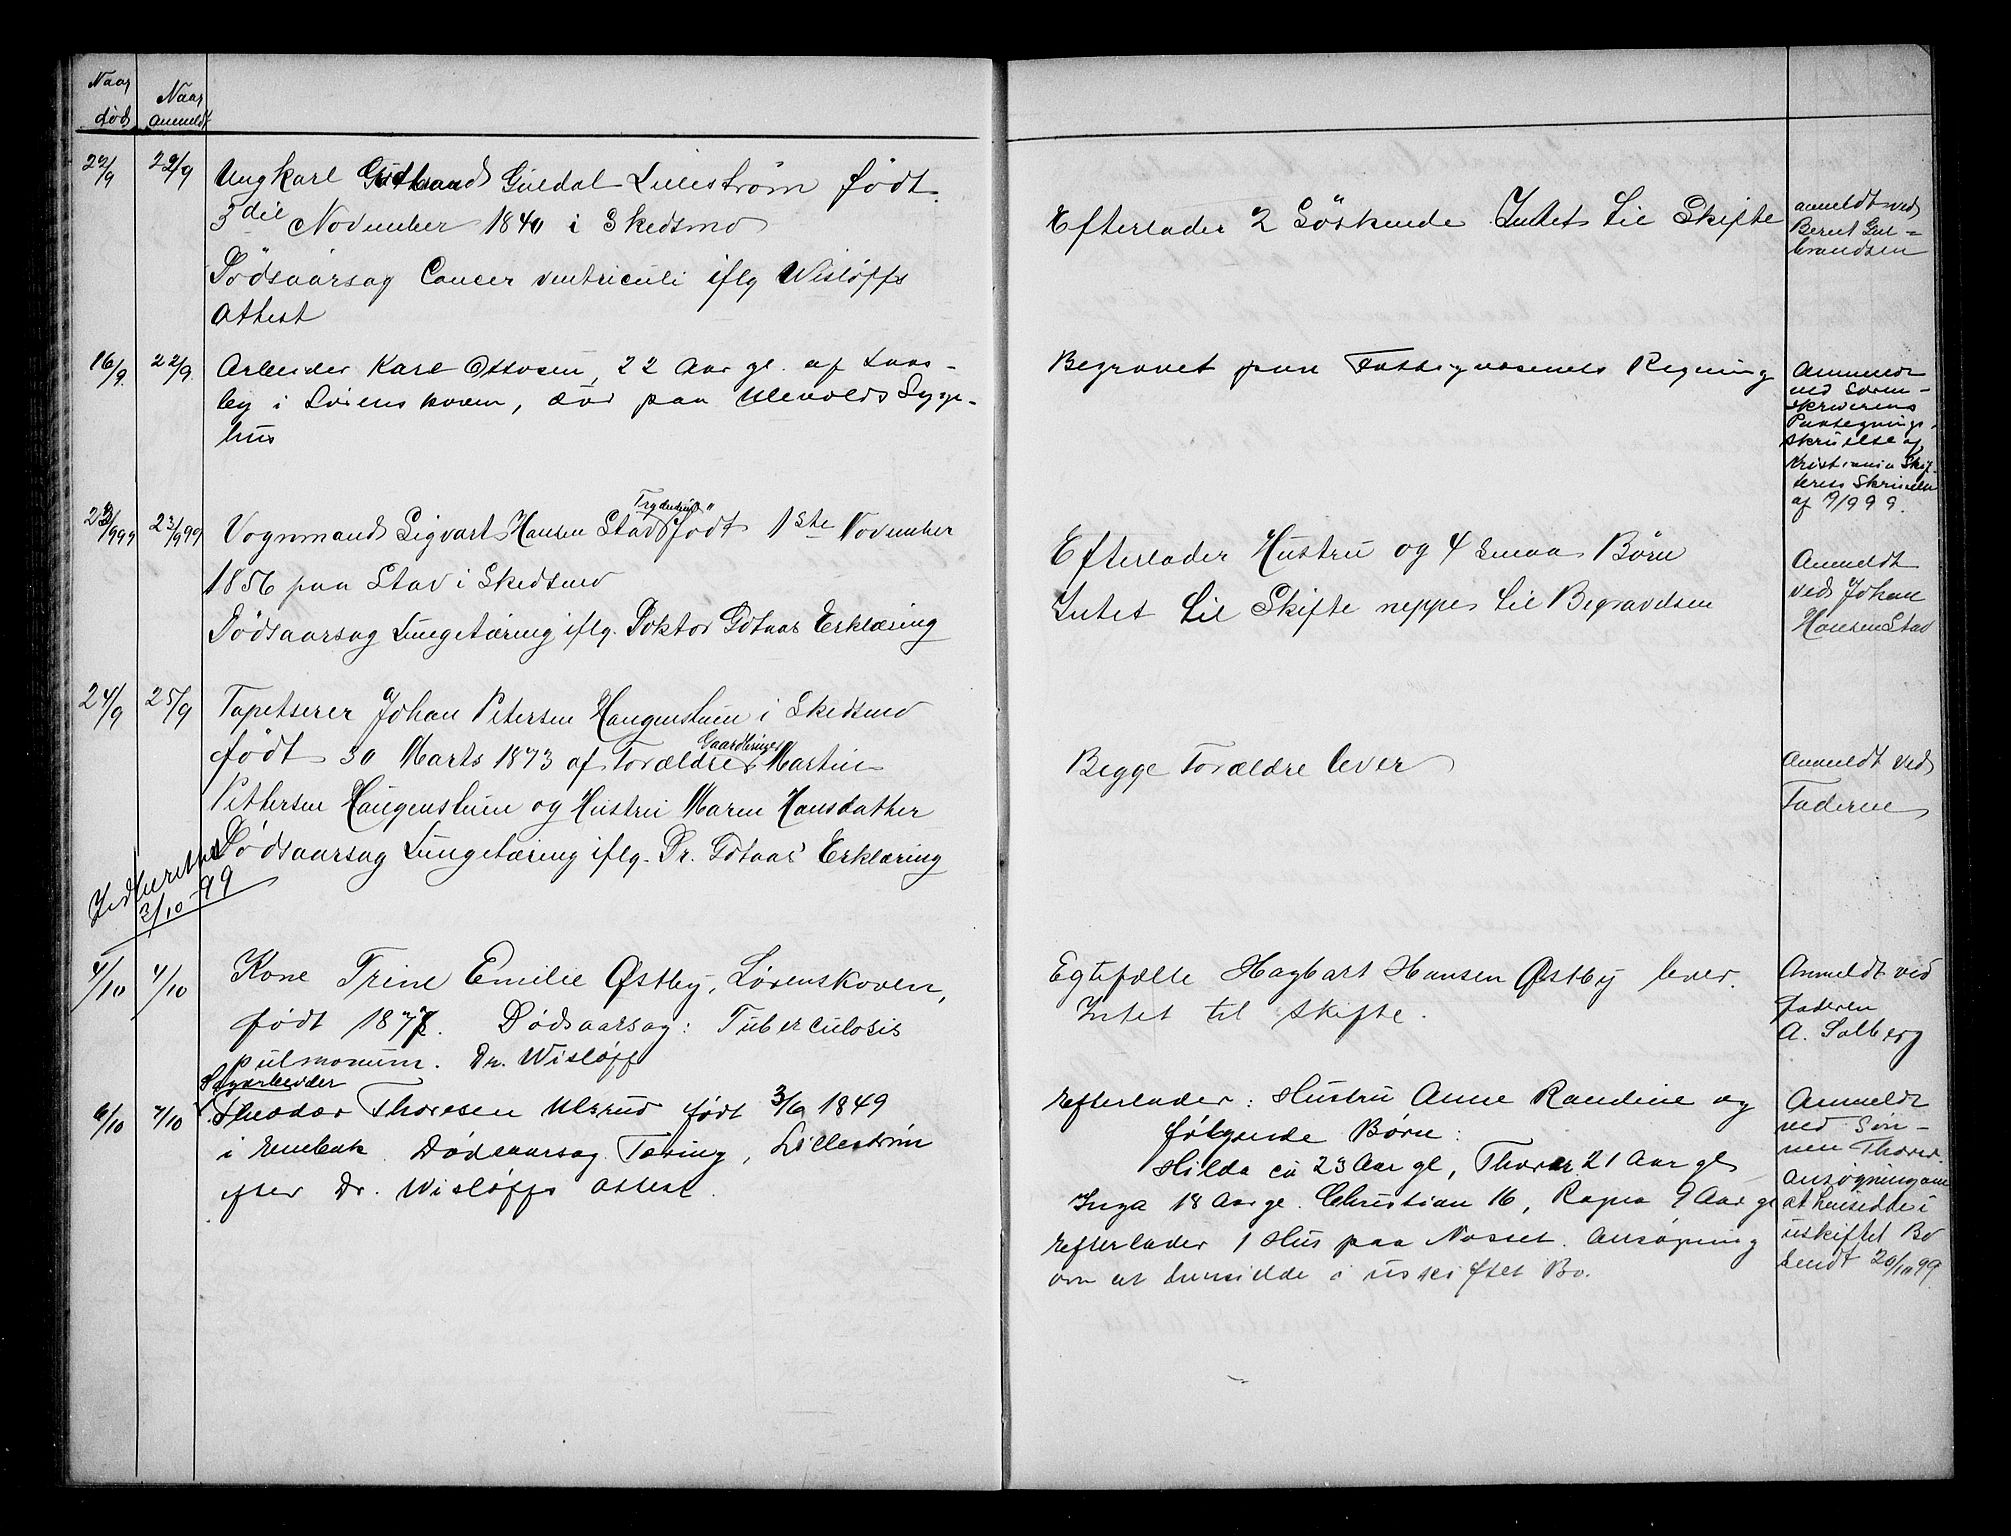 Naar
død
Naar
Anmeldt
22/9
22/9
Ungkarl Gudbrand Guldal Lillestrøm født
3die November 1840 i Skedsmo
Dødsaarsag Cancer ventriculi iflg Wisløffs
Attest
Efterlader 2 Söskende Intet til Skifte
anmeldt ved
Beret Gul=
brandsen
16/9
22/9
Arbeider Karl Ottosen, 22 Aar gl. af Laas-
by i Lørenskoven, død paa Ullevolds Syge-
hus
Begravet paa Fattigvæsenets Regning
Anmeldt
ved Soren-
skriverens
Paategnings-
skrivelse af
Kristiania Skif-
terets Skrivelse
af 9/9 99.
23/9 99
23/9 99
Vognmand Sigvart Hansen Stav født 1ste November
1856 paa Stav i Skedsmo
Dødsaarsag Lungetæring iflg. Doktor Gotaas Erklæring
Efterlader Hustru og 4 smaa Børn
Intet til Skifte neppe til Begravelsen
Anmeldt
ved Johan
Hansen Stav
24/9
25/9
Tapetserer Johan Petersen Haugenstuen i Skedsmo
født 30 Marts 1873 af Forældre Gaardbruger Martin
Pettersen Haugenstuen og Hustru Maren Hansdatter
Dødsaarsag Lungetæring iflg. Dr. Gotaas' Erklæring
Begge Forældre lever
Anmeldt ved
Faderen
Indberettet
2/10-99
4/10
4/10
Kone Trine Emilie Østby, Lørenskoven,
født 1877. Dødsaarsag: Tuberculosis
pulmonum. Dr. Wisløff
Egtefælle Hagbart Hansen Østby lever.
Intet til skifte.
Anmeldt ved
faderen
A. Solberg
6/10
7/10
Sagarbeider
Theodor Thoresen Ulsrud født 3/9 1849
i Enebak. Dødsaarsag Tæring, Lillestrøm
efter Dr. Wisløffs Attest.
Efterlader: Hustru Anne Randine og
følgende Børn:
Hilda ca 23 Aar gl, Thorer 21 Aar gl
Inga 18 Aar gl. Christian 16, Ragna 9 Aar gl
Efterlader 1 Hus paa Nesset. Ansøgning
om at hensidde i uskiftet Bo.
Anmeldt
ved Søn-
nen Thorer.
Ansøgning om
at hensidde i
uskiftet Bo
sendt 20/10 99